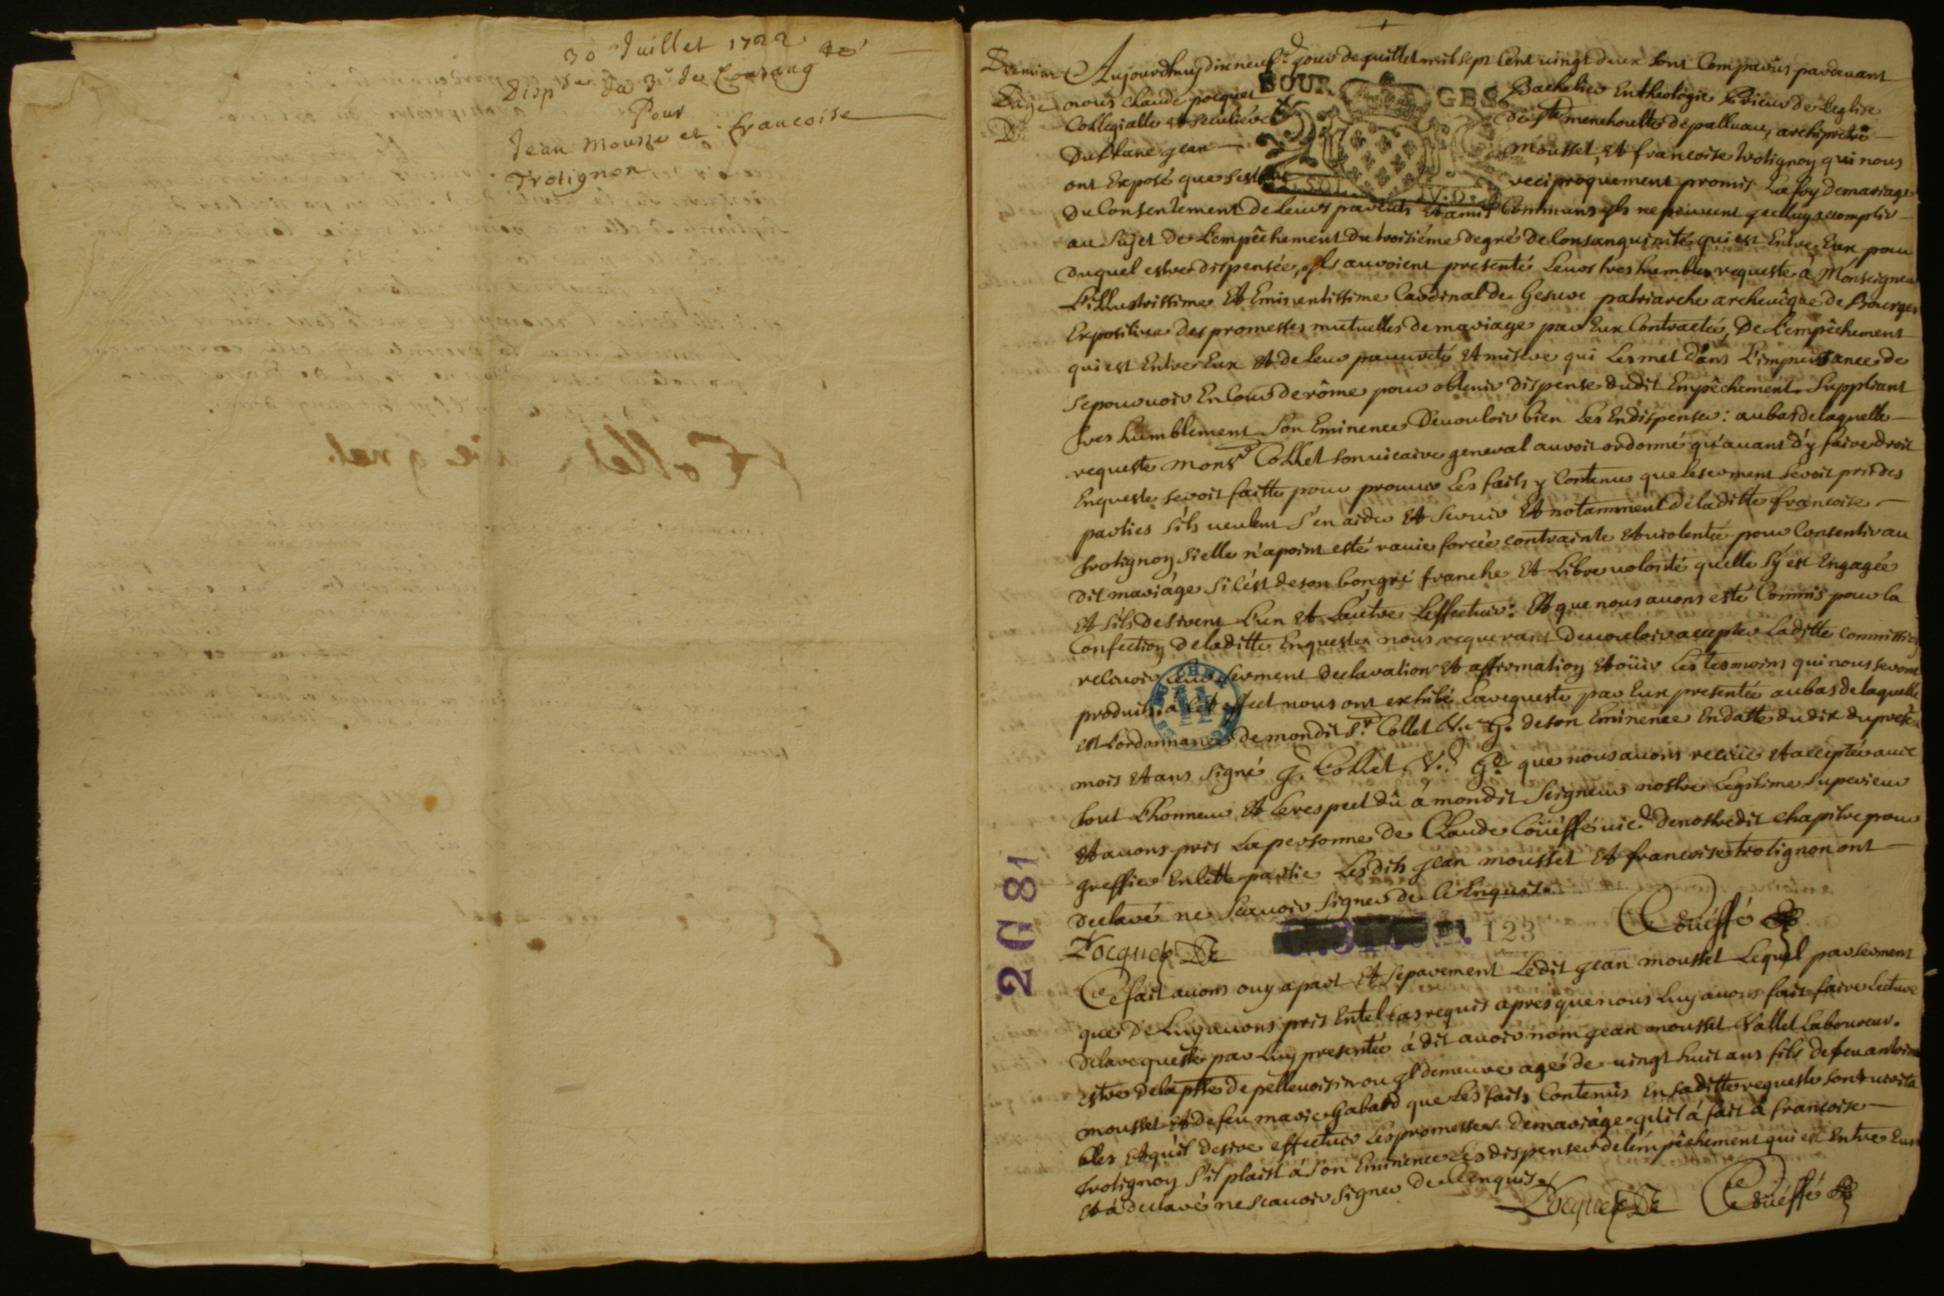 30 Juillet 1722
Disp du 3e de Consang té
Pour
Jean Mousse et francoise
Trotignon
Premier
page
Aujourdhuy dixneufe jour de juillet mil sept cent vingt deux sont Comparus pardevant
nous claude pocquet BOUR GES Bachelier Entheologie Prieur de leglise
Collegialle et seculiere de Ste menehoulte de palluau, archiprêtre
Dublanc jean mousset, et francoise trotignon qui nous
ont Exposé que sestant reciproquement promis La foy de mariage
Du Consentement de Leurs parents et amis Communs jls ne peuvent jceluy accomplir
au sujet de L'empêchement du troisième degré de Consanguinité qui est Entre Eux, pour
duquel estre dispensée, jls auroient presenté Leur tres humble requeste a Monseigneur
L'illustrissime et Eminentissime Cardinal de Gesvre patriarche archevêque de Bourges
Expositive des promesses mutuelles de mariage par Eux Contractée, De L'empêchement
qui est Entre Eux et de leur pauvreté et misere qui Les met dans L'impuissance de
se pourvoir En Cour de rôme pour obtenir dispense dudit Empêchement. Suppliant
tres humblement Son Eminence De vouloir bien Les En dispenser: au bas de laquelle
requeste monsr Collet son vicaire general auroit ordonné qu'avant d'y faire droit
Enqueste seroit faitte pour prouver Les faits y Contenus que le serment seroit pris des
parties s'ils veulent s'en aider et servir et notamment de laditte francoise
trotignon si elle n'a point esté ravie forcée contrainte et violentée pour Consentir au
dit mariage si c'est de son bon gré franche et Libre volonté qu'elle s'y est Engagée
et s'ils desirent L'un et L'autre L'effectuer. Et que nous avons esté Commis pour la
Confection de laditte Enqueste nous requerant de vouloir accepter laditte commission
recevoir leur serment declaration et affirmation et oüir Les tesmoins qui nous seront
produits. a cet effect nous ont exhibé La requeste par Eux presentée au bas de laquelle
est l'ordonnance de mondit Sr. Collet V. G. de son Eminence En datte du dix du present
mois et ans signé G. Collet, V. G. que nous avons recüe et acceptée avec
tout L'honneur et Le respect dû a mondit Seigneur nostre Legitime superieur
et avons pris La personne de Claude Coüeffé vicr. de nostredit chapitre pour
greffier En cette partie Lesdits jean mousset et francoise trotignon ont
declaré ne sçavoir signer de ce Enquis.
123
Pocquet Coüeffé
Ce fait avons ouy a part et separement Ledit jean mousset Lequel par serment
que de Luy avons pris En tel cas requis apres que nous Luy avons fait faire Lecture
de la requeste par Luy presentée á dit avoir nom jean mousset Vallet Laboureur.
estre de la psse de pellevoisin ou jl demeure agé de vingt huit ans fils de feu antoine
mousset et de feu marie Gabard que Les faits Contenus En saditte requeste sont verita
bles et qu'il desire effectuer Les promesses de mariage qu'il á fait á francoise
trotignon s'il plaist á son Eminence Les dispenser de l'empêchement qui est Entre Eux
et á declaré ne sçavoir signer de ce enquis.
Pocquet Coüeffé
2G81